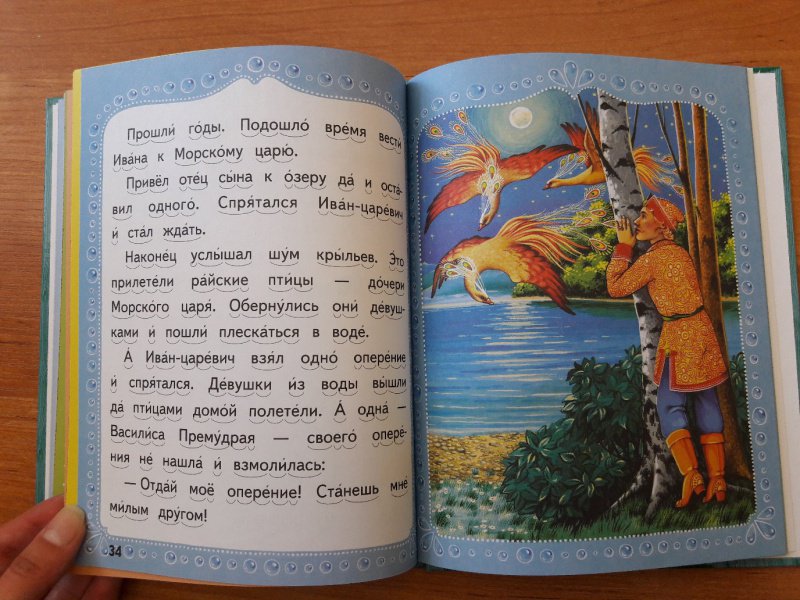 Прошли́ го́ды. Подошло́ вре́мя вести́
Ива́на к Морско́му царю́.
Привёл оте́ц сы́на к о́зеру да́ и оста́-
вил одного́. Спря́тался Ива́н-царе́вич
и́ ста́л жда́ть.
Наконе́ц услы́шал шу́м кры́льев. Э́то
прилете́ли ра́йские пти́цы — до́чери
Морско́го царя́. Оберну́лись они́ де́вуш-
ками и́ пошли́ плеска́ться в воде́.
А́ Ива́н-царе́вич взя́л одно́ опере́ние
и́ спря́тался. Де́вушки и́з воды́ вы́шли
да́ пти́цами домо́й полете́ли. А́ одна́ —
Васили́са Прему́драя — своего́ опере́-
ния не́ нашла́ и́ взмоли́лась:
— Отда́й моё опере́ние! Ста́нешь мне́
ми́лым дру́гом!
34